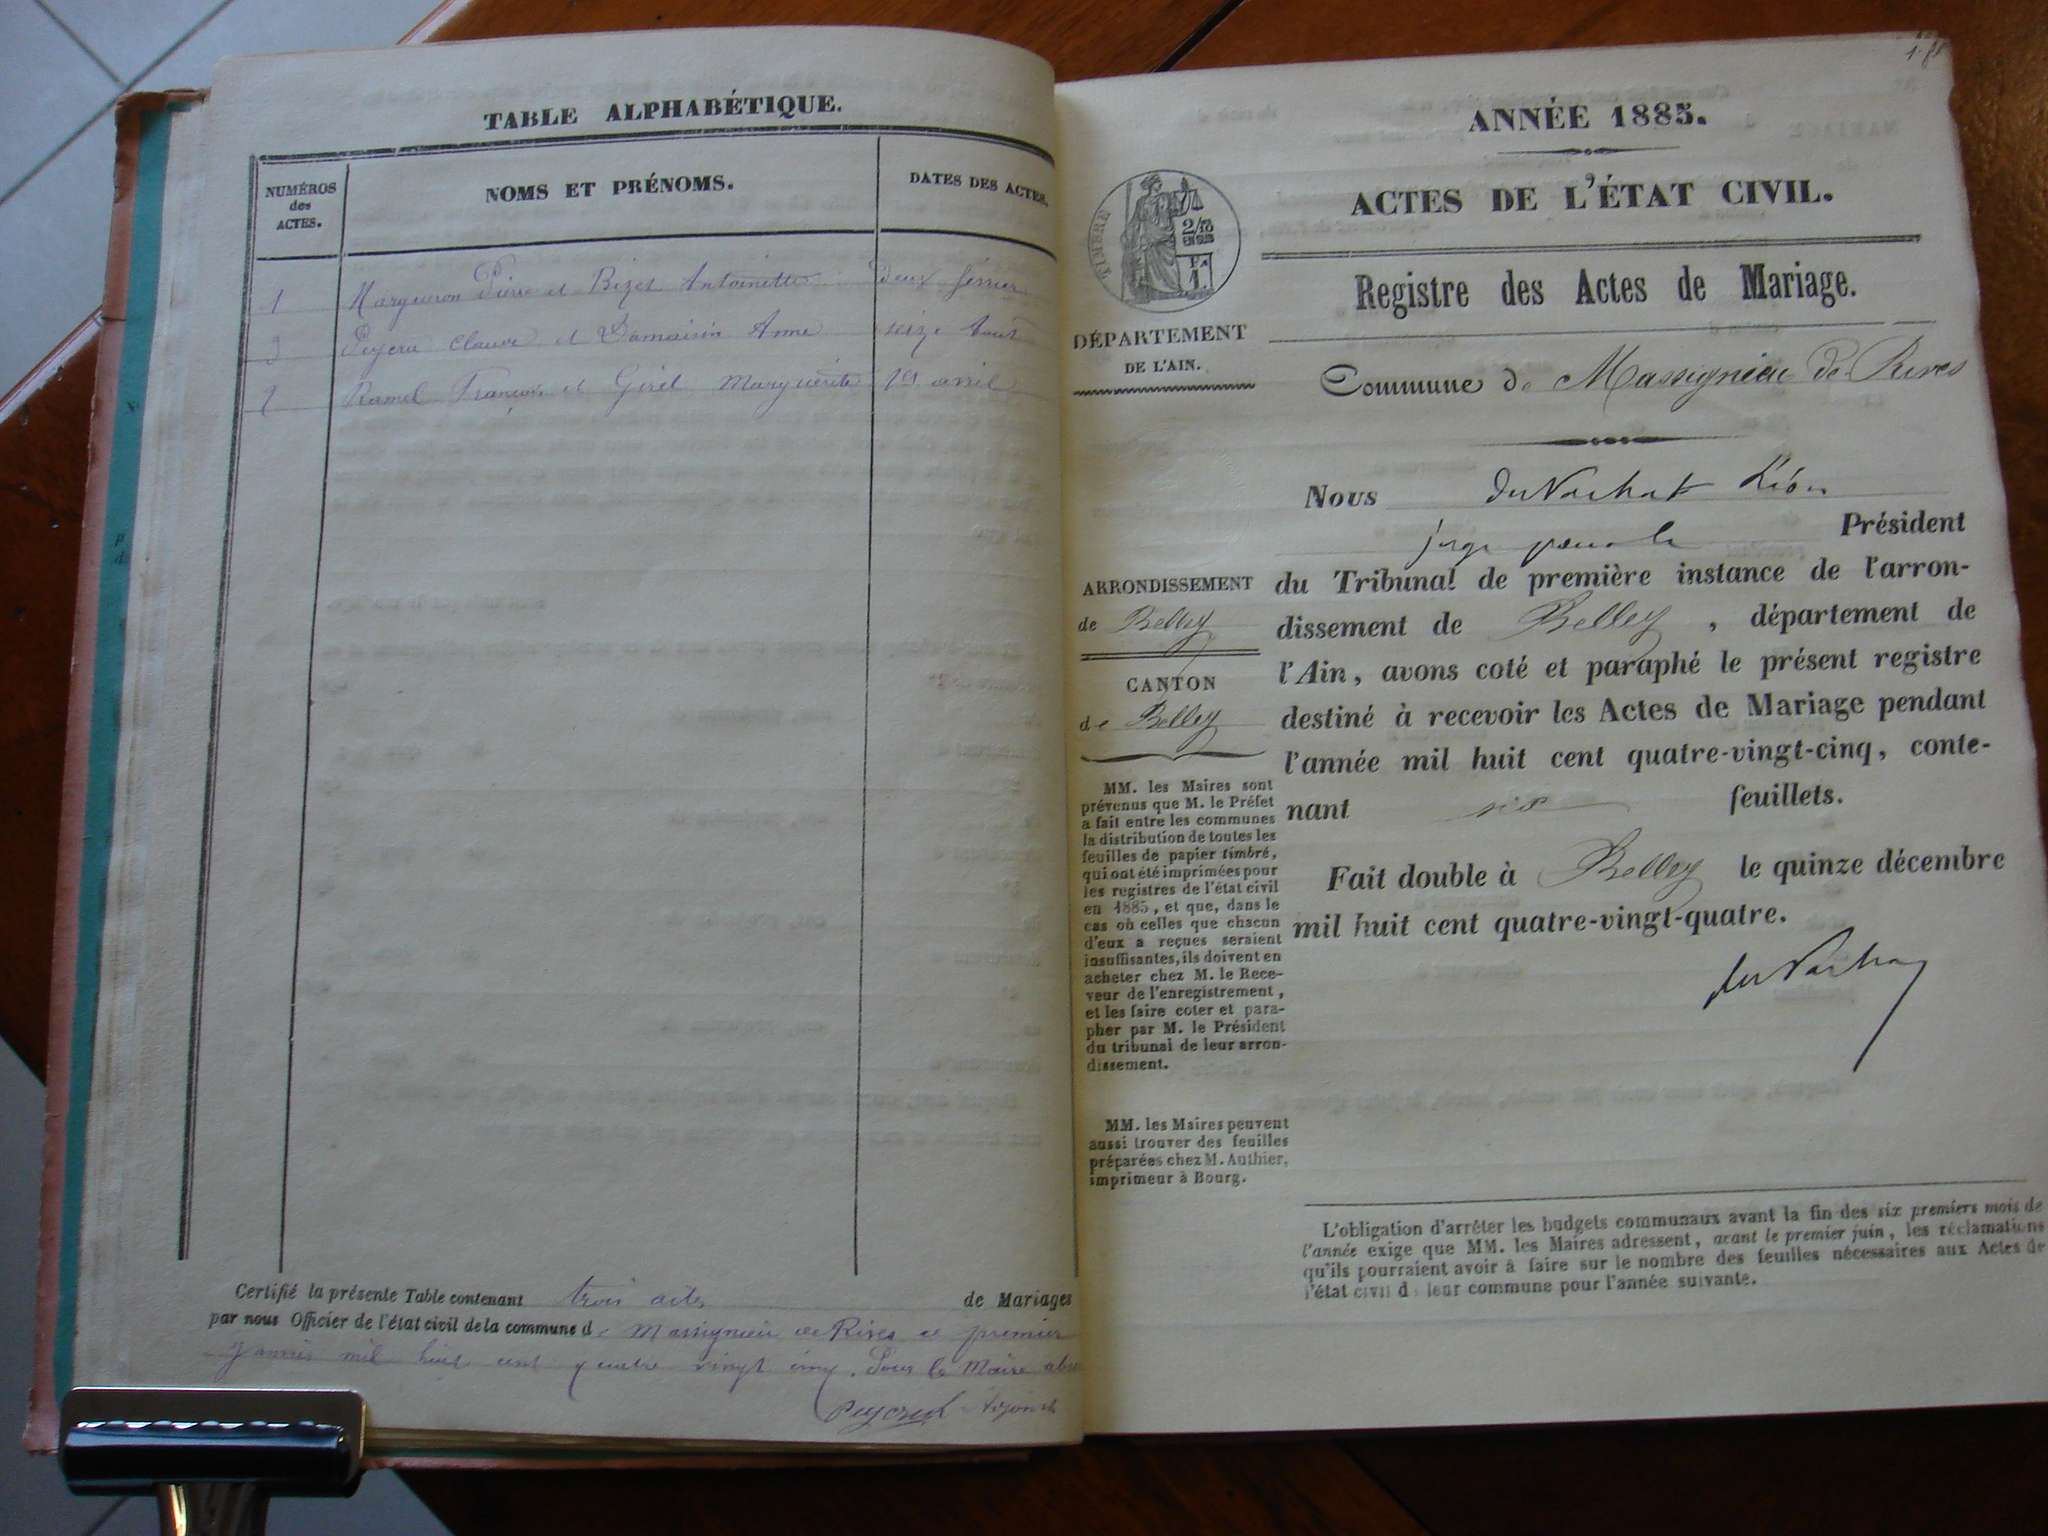 TABLE ALPHABÉTIQUE.
NUMÉROS des ACTES.
NOMS ET PRÉNOMS.
DATES DES ACTES.
1 Margueron Pierre et Bizet Antoinette deux février
3 Claude et Anne seize
2 Ramel François et Girel Marguerite avril
Certifié la présente Table contenant trois actes de Mariages
par nous Officier de l'état civil de la commune de Massignieu de Rives ce premier
janvier mil huit cent quatre vingt cinq. Pour le Maire
Adjoint
ANNÉE 1885.
ACTES DE L'ÉTAT CIVIL.
TIMBRE
2/10
EN SUS
1
DÉPARTEMENT
DE L'AIN.
Registre des Actes de Mariage.
Commune de Massignieu de Rives
Nous du Vachat Léon
juge Président
ARRONDISSEMENT
de Belley
CANTON
de Belley
du Tribunal de première instance de l'arron-
dissement de Belley, département de
l'Ain, avons coté et paraphé le présent registre
destiné à recevoir les Actes de Mariage pendant
l'année mil huit cent quatre-vingt-cinq, conte-
nant six feuillets.
Fait double à Belley le quinze décembre
mil huit cent quatre-vingt-quatre.
du Vachat
MM. les Maires sont
prévenus que M. le Préfet
a fait entre les communes
la distribution de toutes les
feuilles de papier timbré,
qui ont été imprimées pour
les registres de l'état civil
en 1885, et que, dans le
cas où celles que chacun
d'eux a reçues seraient
insuffisantes, ils doivent en
acheter chez M. le Rece-
veur de l'enregistrement,
et les faire coter et para-
pher par M. le Président
du tribunal de leur arron-
dissement.
MM. les Maires peuvent
aussi trouver des feuilles
préparées chez M. Authier,
imprimeur à Bourg.
L'obligation d'arrêter les budgets communaux avant la fin des six premiers mois de
l'année exige que MM. les Maires adressent, avant le premier juin, les réclamations
qu'ils pourraient avoir à faire sur le nombre des feuilles nécessaires aux Actes de
l'état civil de leur commune pour l'année suivante.